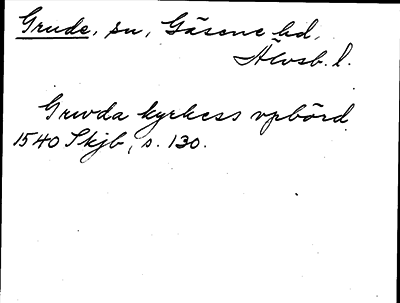 Grude, sn, Gäsene hd,
Älvsb. l.
Grwda kyrkess vpbörd
1540 Skjb, s. 130.